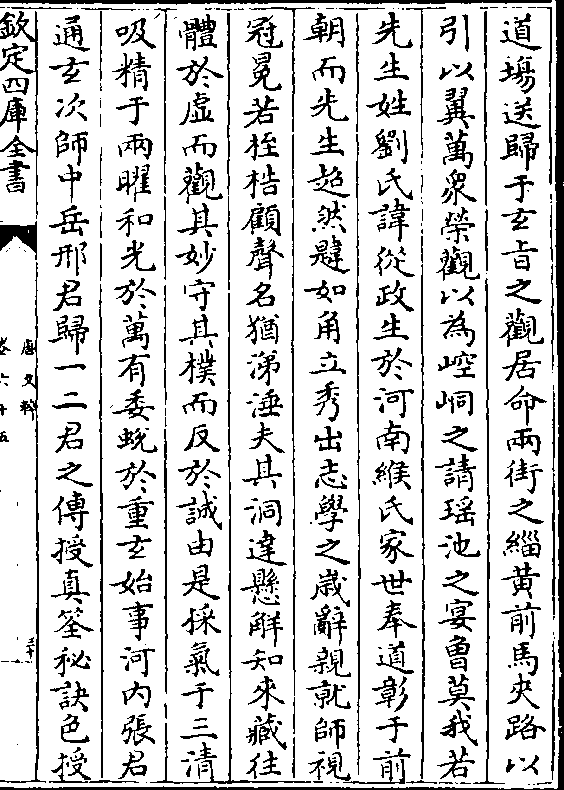 道場送歸于玄旨之觀居命兩街之緇黃前馬夾路以
引以翼萬衆榮觀以為崆峒之請瑶池之宴曾莫我若
先生姓劉氏諱從政生於河南緱氏家世奉道彰于前
朝而先生超然韙如角立秀出志學之嵗辭親就師視
冠冕若桎梏顧聲名猶涕唾夫其洞達懸解知來藏往
體於虛而觀其妙守其樸而反於誠由是採氣于三清
吸精于兩曜和光於萬有委蛻於重玄始事河内張君
通玄次師中岳邢君歸一二君之傳授真筌秘訣色授
欽定四庫全書
唐文粹
卷六十五